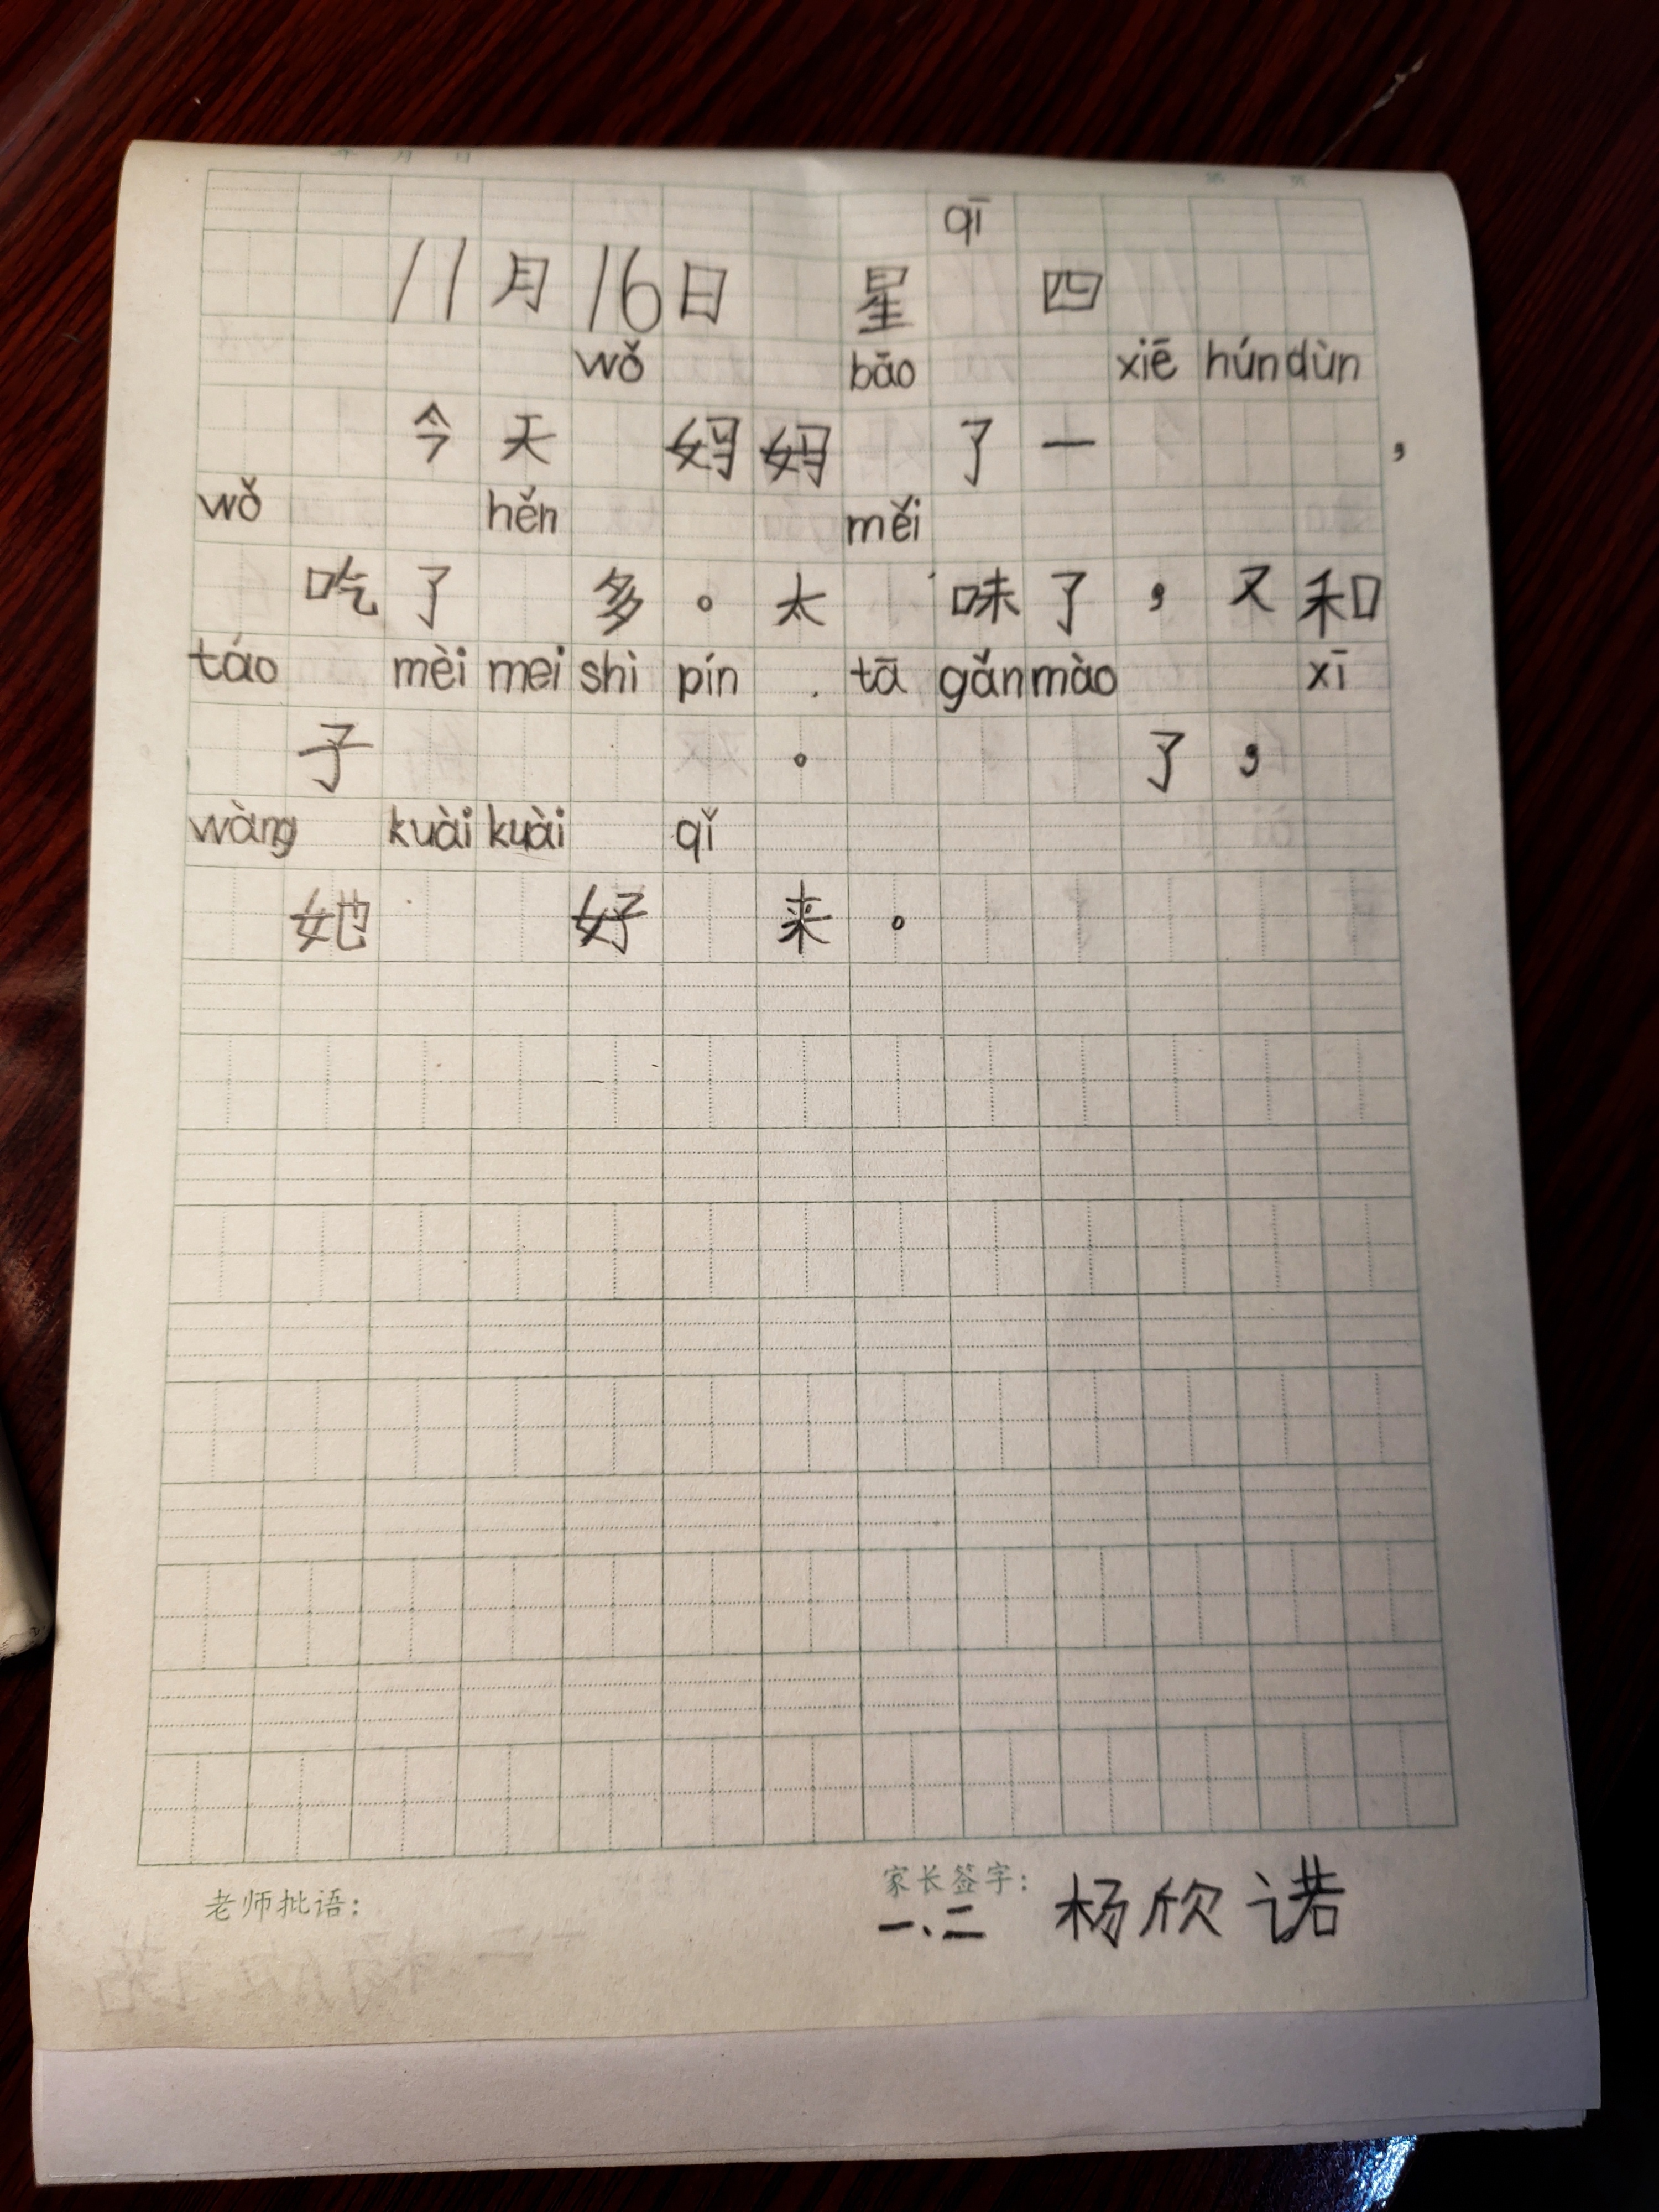 年 月 日 第 页
qī
11月16日 星 四
wǒ bāo xiē húndùn
今天 妈妈 了一 ，
wǒ hěn měi
吃了 多。太 味了，又和
táo mèi mei shì pín . tā gǎnmào xī
子 。 了，
wàng kuài kuài qǐ
她 好 来。
老师批语：
家长签字：
一、二 杨欣诺